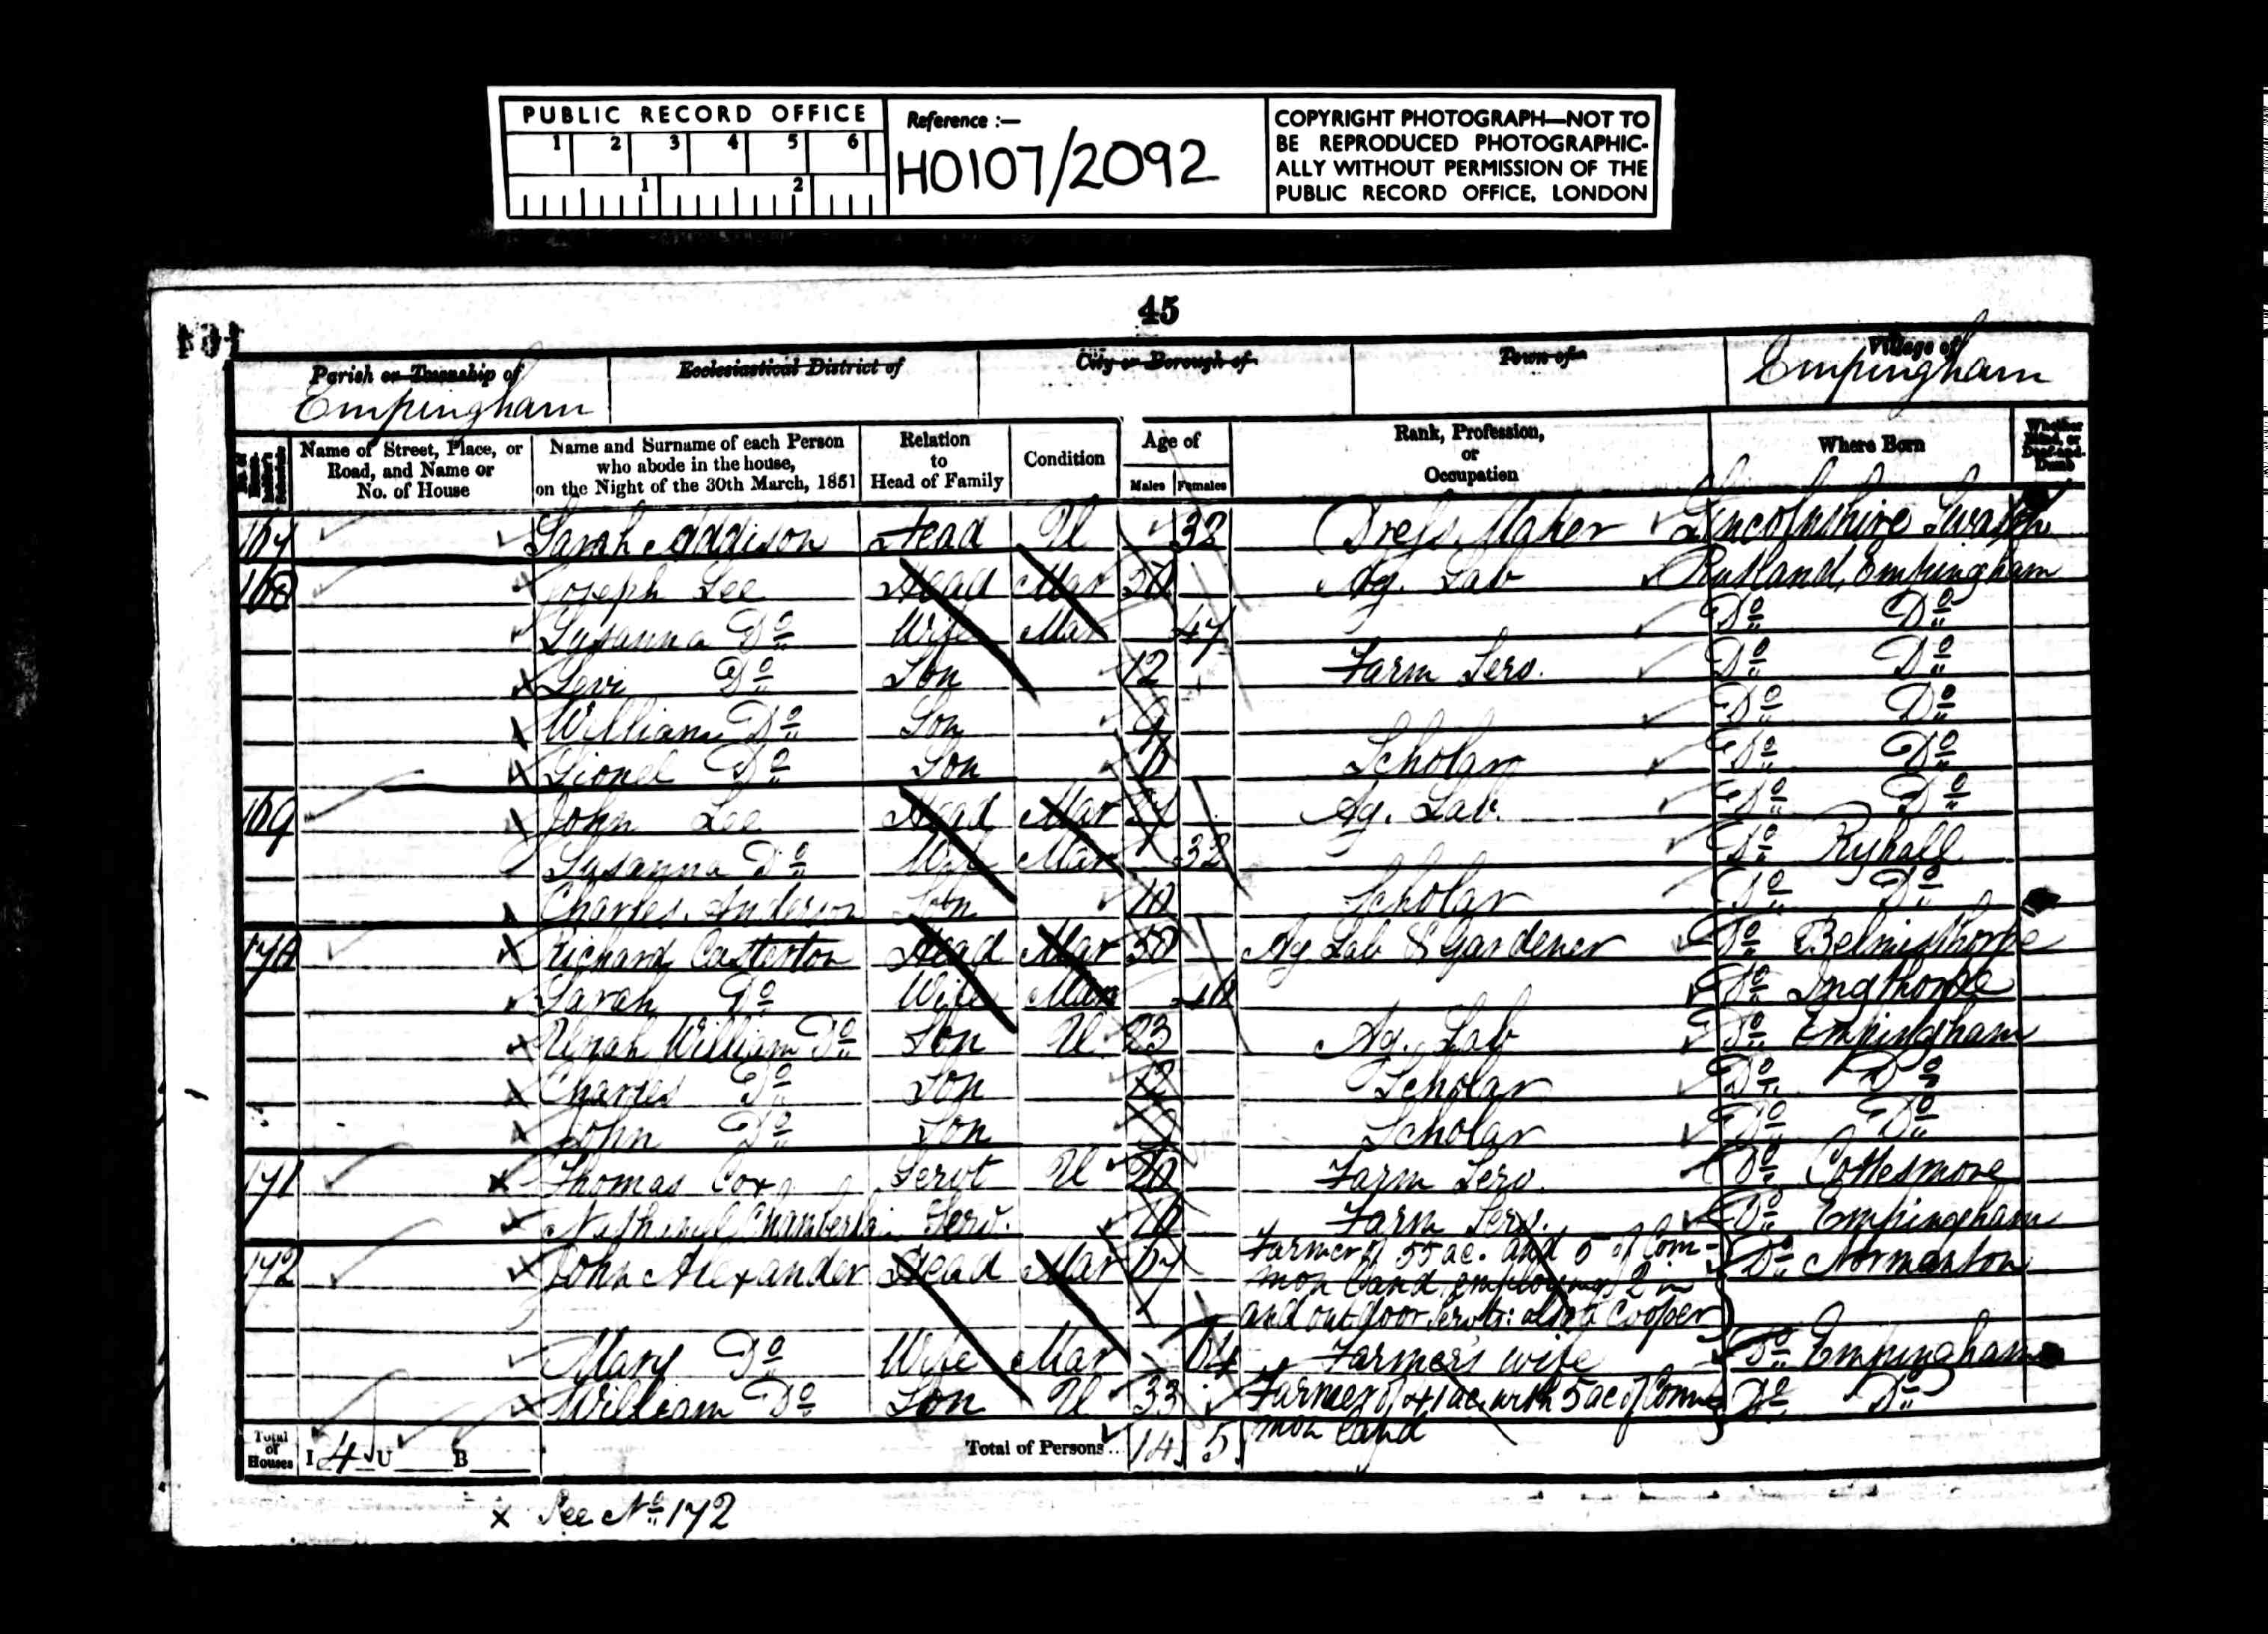 PUBLIC RECORD OFFICE
1 2 3 4 5 6
1 2
Reference :—
HO107/2092
COPYRIGHT PHOTOGRAPH—NOT TO
BE REPRODUCED PHOTOGRAPHIC-
ALLY WITHOUT PERMISSION OF THE
PUBLIC RECORD OFFICE, LONDON
45
Parish or Township of Ecclesiastical District of City or Borough of Town of Village of
Empingham Empingham
Name of Street, Place, or Road, and Name or No. of House
Name and Surname of each Person who abode in the house, on the Night of the 30th March, 1851
Relation to Head of Family
Condition
Age of
Males Females
Rank, Profession, or Occupation
Where Born
Whether Blind, or Deaf-and-Dumb
167 Sarah Addison Head U 38 Dress Maker Lincolnshire
168 Joseph Lee Head Mar Ag. Lab Rutland, Empingham
Susanna Do Wife Mar 47 Do Do
Levi Do Son 12 Farm Serv. Do Do
William Do Son 9 Do Do
Lionel Do Son Scholar Do Do
169 John Lee Head Mar Ag. Lab. Do Do
Susanna Do Wife Mar 32 Do Ryhall
Charles Anderson Son 10 Scholar Do Do
170 Richard Casterton Head Mar 50 Ag Lab & Gardener Do Belmisthorpe
Sarah Do Wife Mar Do Ingthorpe
Uriah William Do Son U 23 Ag. Lab Do Empingham
Charles Do Son 12 Scholar Do Do
John Do Son Scholar Do Do
171 Thomas Cox Servt U 20 Farm Serv. Do Cottesmore
Chamberlain Serv. Farm Serv. Do Empingham
172 John Alexander Head Mar 67 Farmer of 55 ac. and 5 of Com- Do Normanton
mon land employing 2 in
and outdoor servts: also a Cooper
Mary Do Wife Mar 64 Farmer's wife Do Empingham
William Do Son U 33 Farmer of 41 ac with 5 ac of Com- Do Do
mon land
Total of Houses I 4 U B Total of Persons .. 14 5
x See No 172